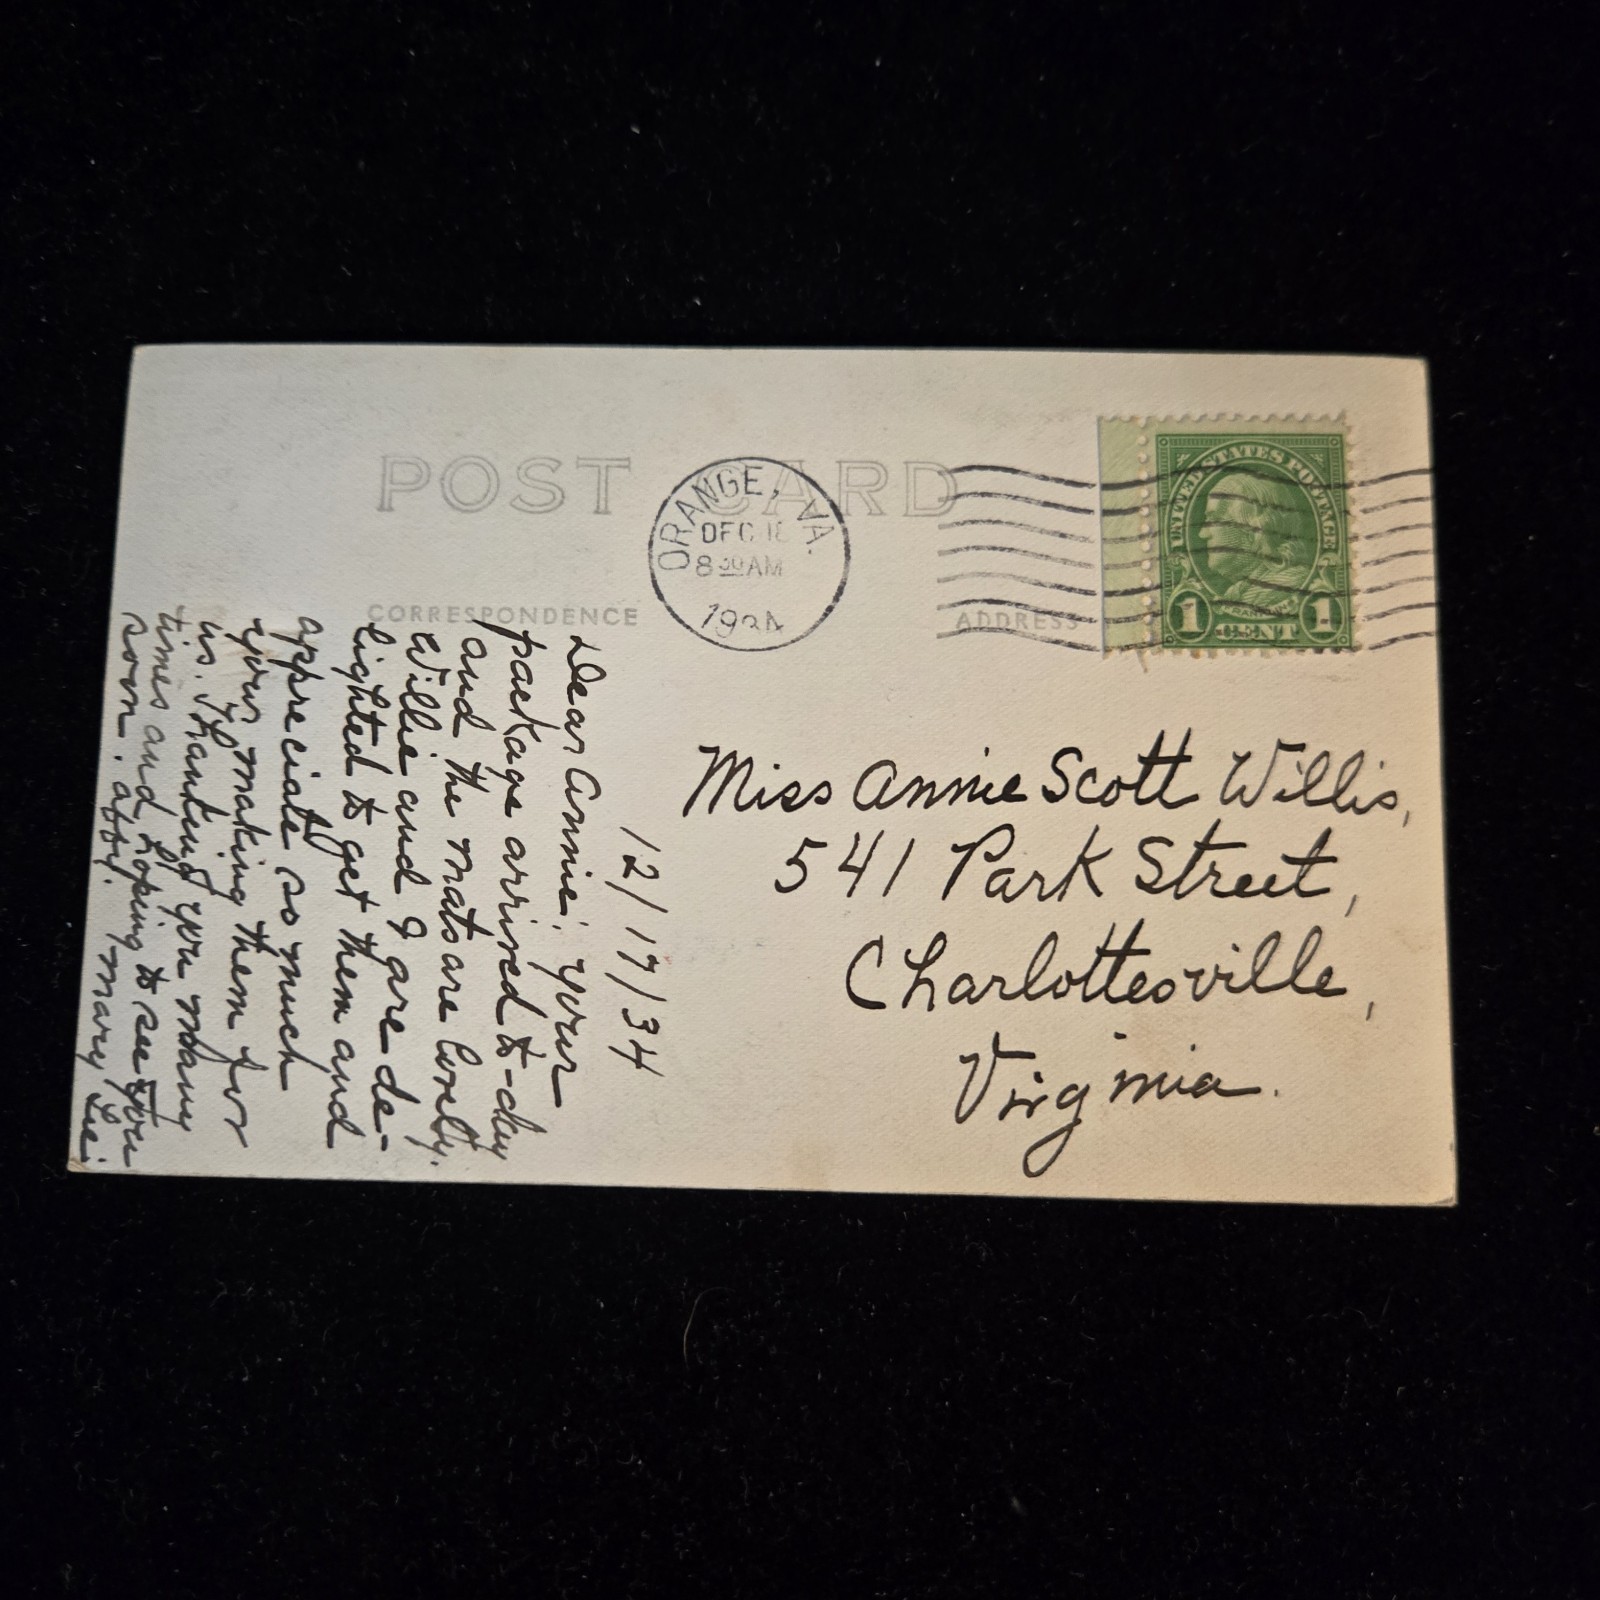 POST CARD
ORANGE, VA.
DEC 18
8 30 AM
1934
UNITED STATES POSTAGE
FRANKLIN
1 CENT 1
CORRESPONDENCE
ADDRESS
12/17/34
Dear Annie: Your
package arrived to-day
and the mats are lovely.
Willie and I are de-
lighted to get them and
appreciate so much
your making them for
us. Thanking you many
times and hoping to see you
soon. Mary Lee.
Miss Annie Scott Willis,
541 Park Street,
Charlottesville,
Virginia.